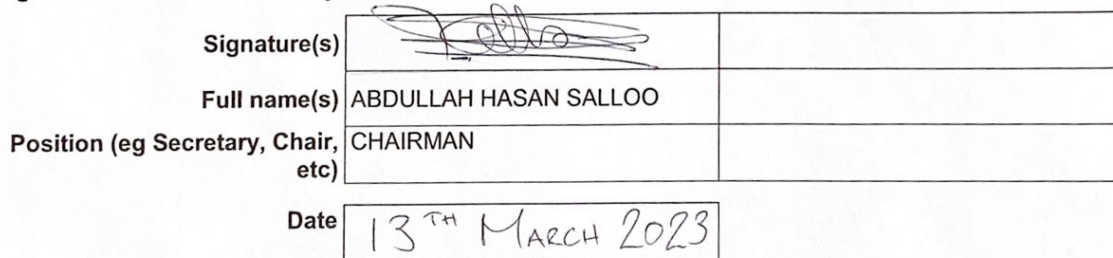 Signature(s)
Full name(s) ABDULLAH HASAN SALLOO
Position (eg Secretary, Chair, etc) CHAIRMAN
Date 13TH MARCH 2023